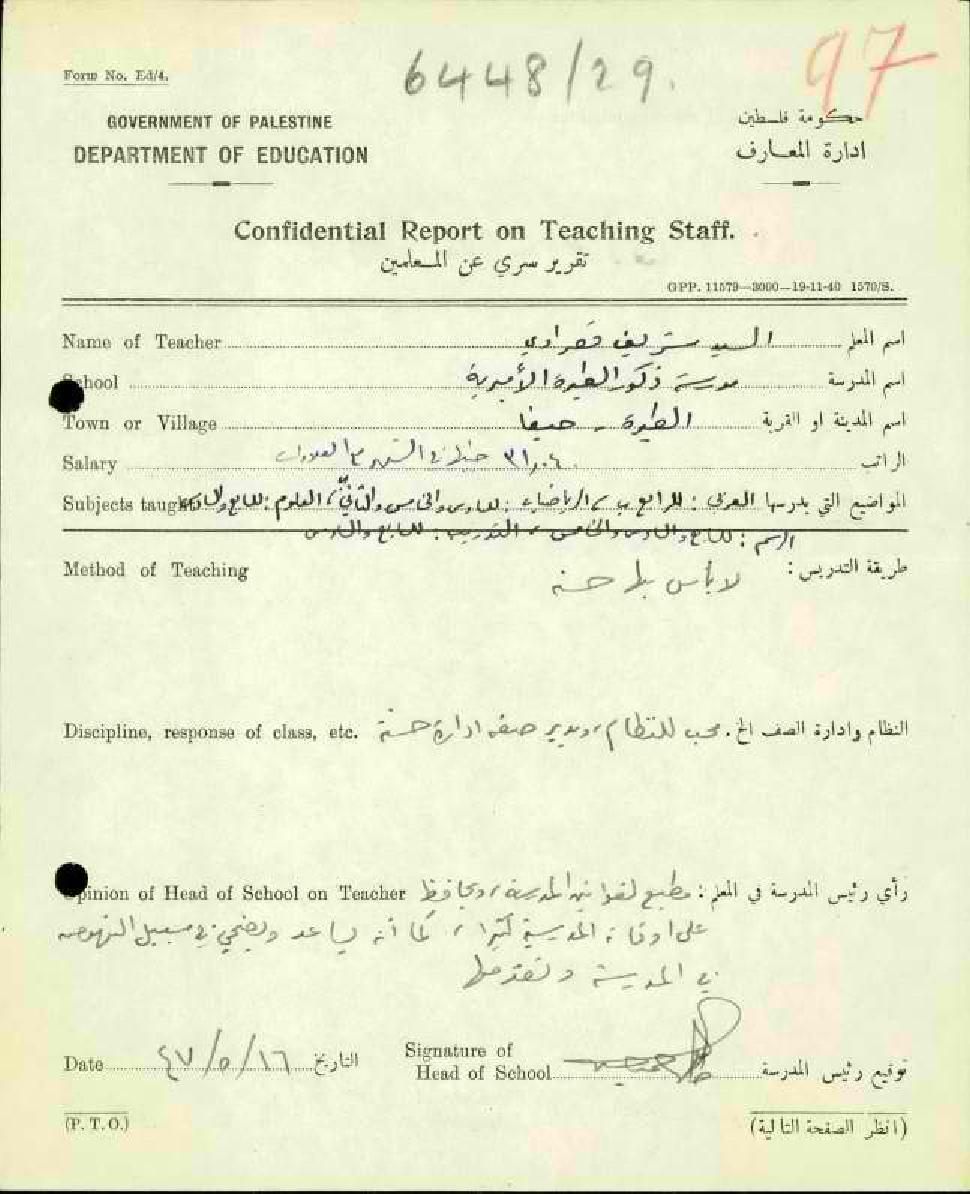 6448/29.
97
Form No. Ed/4.
GOVERNMENT OF PALESTINE
حكومة فلسطين
DEPARTMENT OF EDUCATION
ادارة المعارف
Confidential Report on Teaching Staff.
تقرير سري عن المعلمين
GPP. 11579—3000—19-11-40 1570/S.
Name of Teacher السيد شريف اسم المعلم
School مدرسة ذكور الطيرة الأميرية اسم المدرسة
Town or Village الطيرة - حيفا اسم المدينة او القرية
Salary في الشهر مع العلاوات الراتب
Subjects taught المواضيع التي يدرسها العربي: للرابع ب، الرياضيات: للسادس والخامس والثاني، العلوم: للسابع والسادس
الرسم: للسابع والسادس والخامس، التدريب: للسابع والسادس
Method of Teaching طريقة التدريس: لا بأس بل حسنة
Discipline, response of class, etc. النظام وادارة الصف الخ. محب للنظام، ويدير صفه ادارة حسنة
Opinion of Head of School on Teacher رأي رئيس المدرسة في المعلم: مطيع لقوانين المدرسة، ويحافظ
على اوقات المدرسة كثيرا، كما أنه يساعد ويضحي في سبيل النهوض
في المدرسة وتقدمها
Date ٤٧/٥/١٦ التاريخ
Signature of
Head of School توقيع رئيس المدرسة
(P. T. O.) (انظر الصفحة التالية)